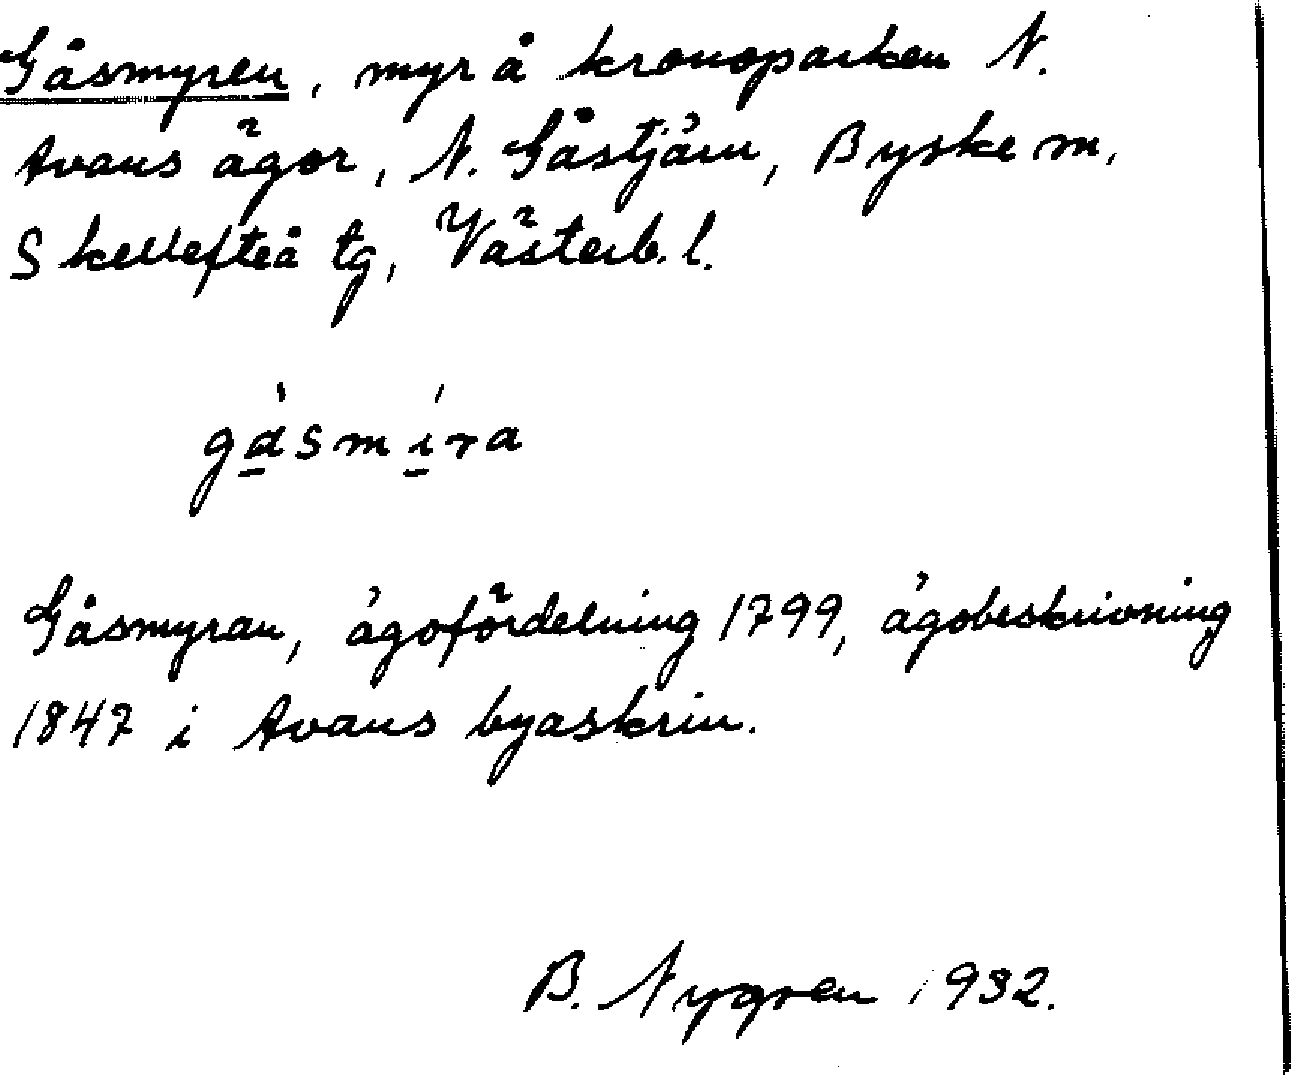 Gåsmyren, myr å kronoparken N.
Avans ägor, N. Gåstjärn, Byske sn,
Skellefteå tg, Västerb. l.
gásmíra
Gåsmyran, ägofördelning 1799, ägobeskrivning
1847 i Avans byaskrin.
B. Nygren 1932.